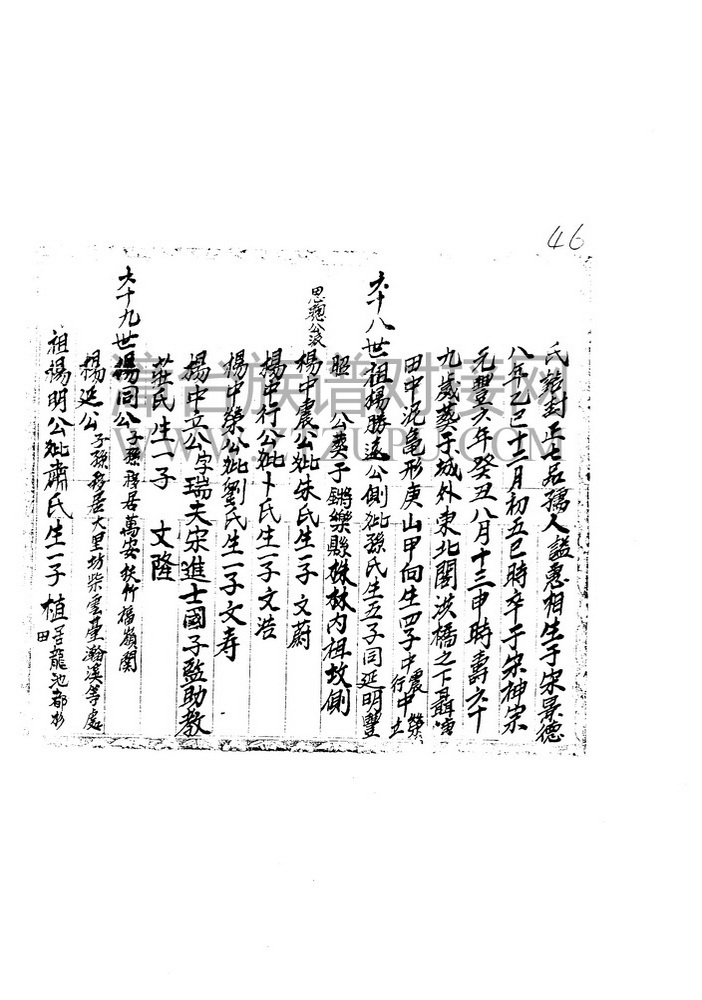 46
氏誥封正七品孺人謚惠相生于宋景德
八年乙巳十二月初五巳時卒于宋神宗
元豐六年癸丑八月十三申時壽六十
九歲葬于城外東北關洪橋之下
田中泥龜形庚山甲向生四子中震中榮中行中立
六十八世祖楊勝遠公側妣孫氏生五子同延明豐
昭 公葬于鏘樂縣株林內祖坟側
思聰公派
楊中震公妣朱氏生一子 文蔚
楊中行公妣卜氏生一子文浩
楊中榮公妣劉氏生一子文寿
楊中立公字瑞夫宋進士國子監助教
莊氏生一子 文隆
六十九世楊同公子孫移居萬安扶竹福嶺閣
楊延公子孫移居大里坊柴雲董瀚溪等處
祖楊明公妣肅氏生一子 植居龍池都杉田